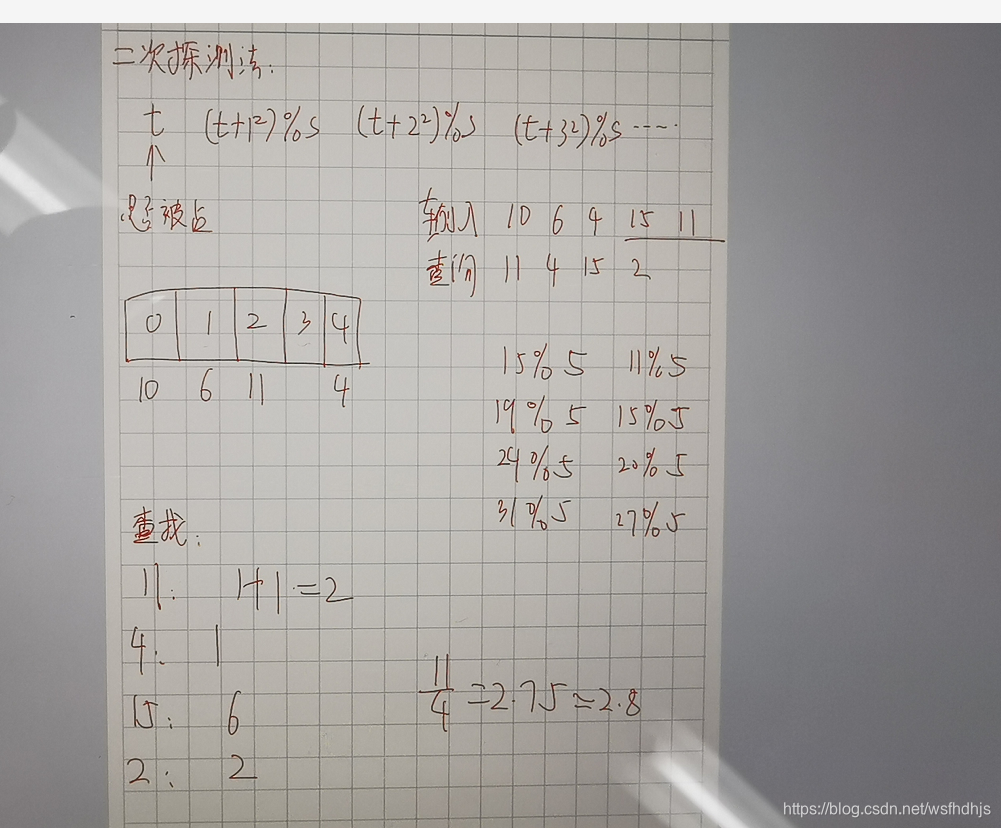 二次探测法:
t (t+1²)%s (t+2²)%s (t+3²)%s ----
↑
是否被占
输入 10 6 4 15 11
查询 11 4 15 2
0 1 2 3 4
10 6 11 4
15%5 11%5
19%5 15%5
24%5 20%5
31%5 27%5
查找:
11: 1+1=2
4: 1
15: 6
2: 2
11/4=2.75≈2.8
https://blog.csdn.net/wsfhdhjs